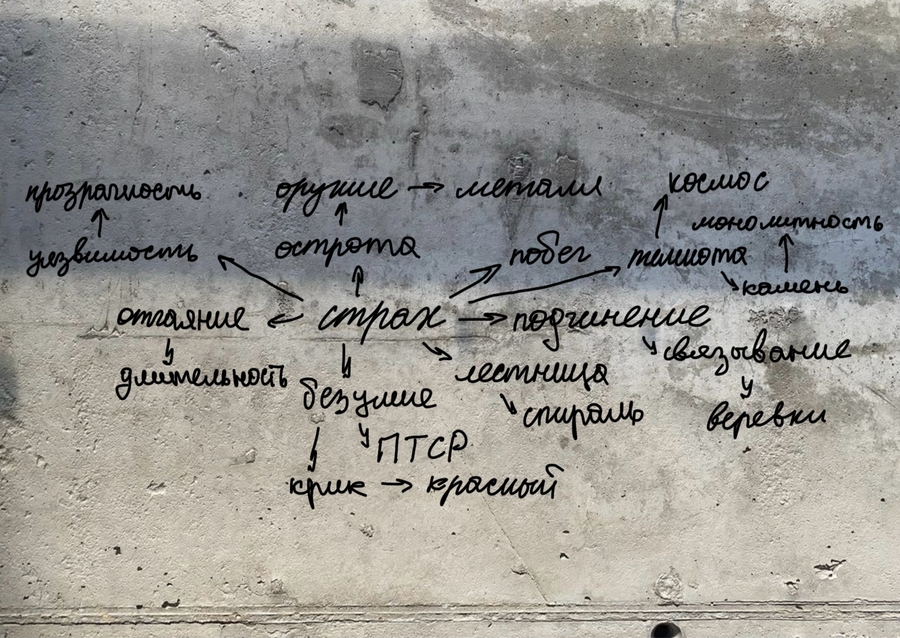 прозрачность оружие → металл космос
монолитность
уязвимость острота побег темнота
камень
отчаяние страх подчинение
связывание
длительность лестница
безумие спираль веревки
ПТСР
крик → красный